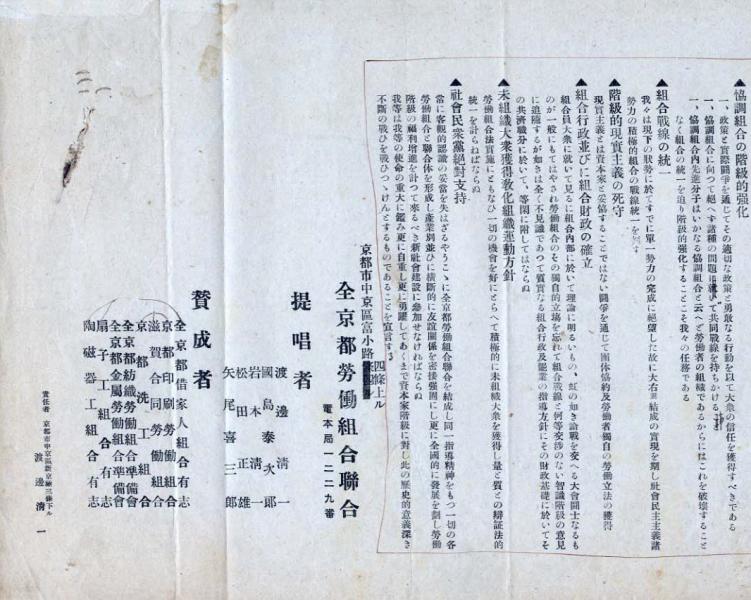 ▲協調組合の階級的強化
一、政策と實際鬪爭を通じてその適切な政策と勇敢なる行動を以て大衆の信任を獲得すべきである
一、協調組合に向つて絶へず諸種の問題に就いて共同戰線を持ちかける事
一、協調組合內先進分子はいかなる協調組合と云へど勞働者の組織であるからにはこれを破壊すること
なく組合の統一を迫り階級的强化することこそ我々の任務である
▲組合戰線の統一
我々は現下の狀勢に於てすでに單一勢力の完成に絶望した故に大右翼結成の實現を期し社會民主主義諸
勢力の積極的組合の戰線統一を期す
▲階級的現實主義の死守
現實主義とは資本家と妥協することではない鬪爭を通じて團体協約及勞働者獨自の勞働立法の獲得
▲組合行政並びに組合財政の確立
組合員大衆に就いて見るに組合內部に於いて理論に明るいもの、虹の如き論戰を交へる大會鬪士なるも
のが一般にもてはやされ勞働組合のその獨自的立場を忘れて組合戰線と何等交渉のない智識階級の意見
に追隨するが如きは全く不見識であつて質實なる組合行政及罷業の指導方針にその財政基礎に於いてそ
の共濟職分に於いて、等閑に附してはならぬ
▲未組織大衆獲得敎化組織運動方針
勞働組合法實施にともなひ一切の機會を好にとらへて積極的に未組織大衆を獲得し量と質との辯証法的
統一を計らねばならぬ
▲社會民衆黨絶對支持
常に客觀的認識の妥當を失はざるやうこゝに全京都勞働組合聯合を結成し同一指導精神をもつ一切の各
勞働組合と聯合体を形成し產業別並びに橫斷的に友誼關係を密接强固にし更に全國的に發展を劃し勞働
階級の福利增進を計つて來るべき新社會建設に參加せなければならぬ
我等は我等の使命の重大に鑑み更に自重し更に勇躍してあくまで資本家階級に對し此の歷史的意義深き
不斷の戰ひを戰ひつゝけんとするものであることを宣言する
京都市中京區富小路四條上ル
全京都勞働組合聯合
電本局一二二九番
提唱者
渡邊淸一
國島泰次郎
岩本淸一
松田正雄
矢尾喜三郎
贊成者
全京都借家人組合有志
京都印刷勞働組合
滋賀合同勞働組合
京都洗工組合
全京都紡織勞働組合準備會
全京都金屬勞働組合準備會
扇子工組合有志
陶磁器工組合有志
責任者 京都市中京區新京極三條下ル
渡邊淸一